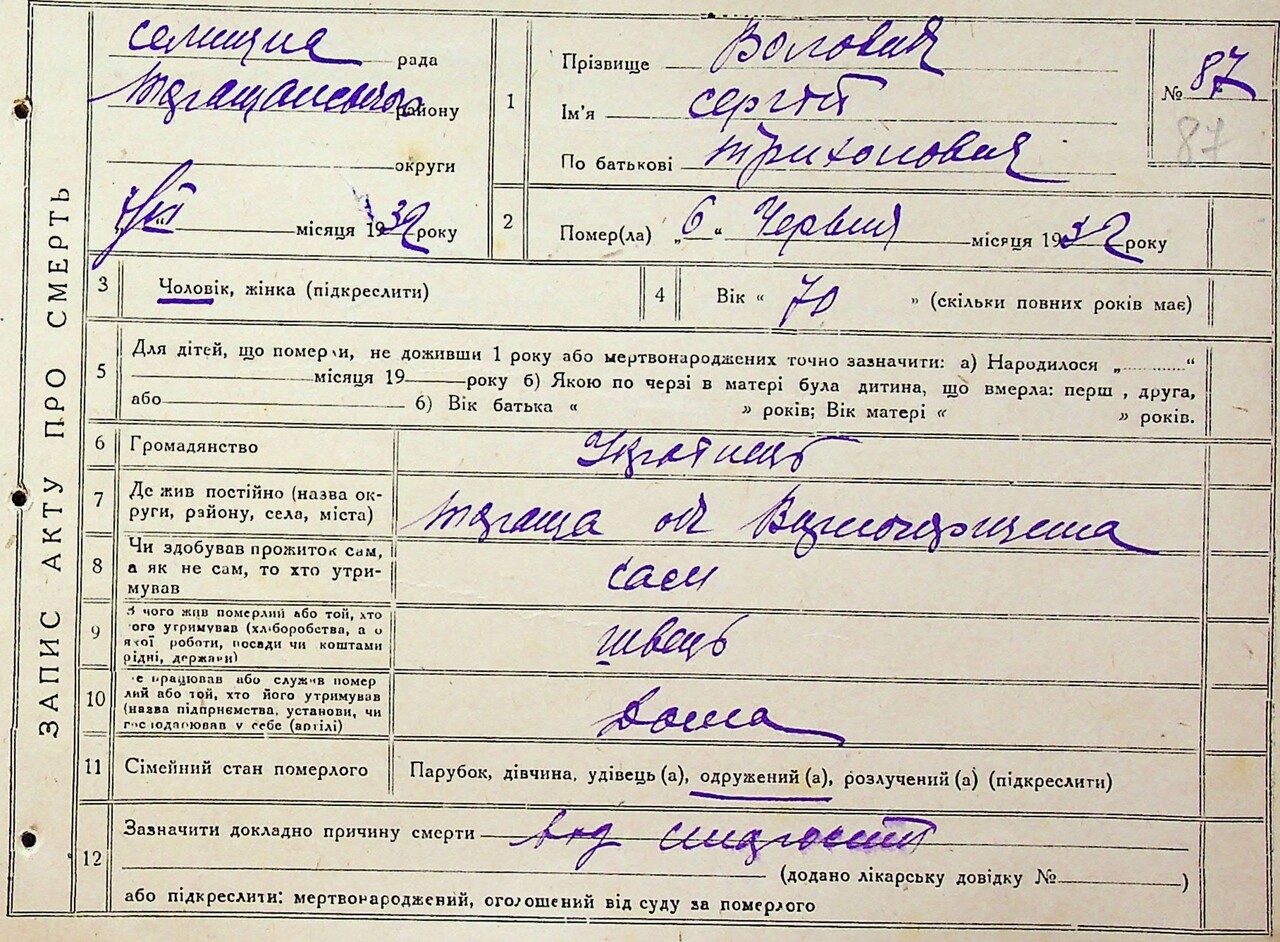 ЗАПИС АКТУ ПРО СМЕРТЬ
селищна рада
Таращанського району
округи
місяця 1932 року
1
Прізвище Волович
Ім'я Сергій
По батькові
№ 87
87
2
Помер(ла) „6“ Червня місяця 1932 року
3
Чоловік, жінка (підкреслити)
4
Вік « 70 » (скільки повних років має)
5
Для дітей, що померли, не доживши 1 року або мертвонароджених точно зазначити: а) Народилося „ “
місяця 19 року б) Якою по черзі в матері була дитина, що вмерла: перш , друга,
або б) Вік батька « » років; Вік матері « » років.
6
Громадянство
Українець
7
Де жив постійно (назва ок-
руги, району, села, міста)
Тараща
8
Чи здобував прожиток сам,
а як не сам, то хто утри-
мував
сам
9
З чого жив померлий або той, хто
ого утримував (хліборобства, а о
якої роботи, посади чи коштами
рідні, держави)
швець
10
е працював або служив помер
лий або той, хто його утримував
(назва підприємства, установи, чи
господарював у себе (артілі)
Дома
11
Сімейний стан померлого
Парубок, дівчина, удівець (а), одружений (а), розлучений (а) (підкреслити)
12
Зазначити докладно причину смерти від старості
(додано лікарську довідку № )
або підкреслити: мертвонароджений, оголошений від суду за померлого